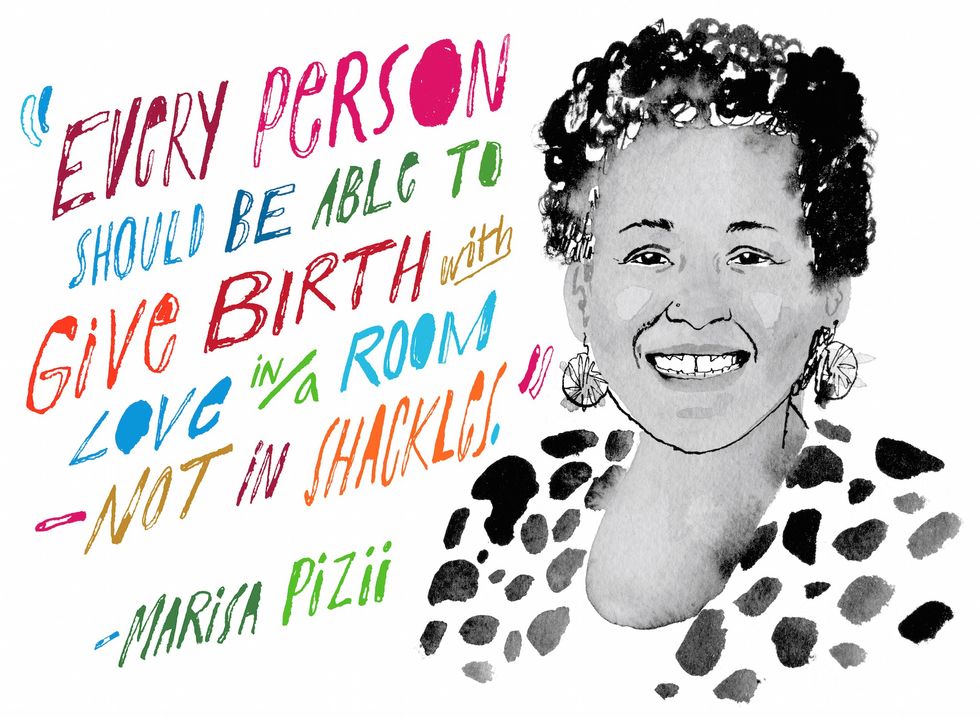 "EVERY PERSON
SHOULD BE ABLE TO
GIVE BIRTH with
LOVE in/a ROOM
-NOT IN SHACKLES."
-MARISA PIZII